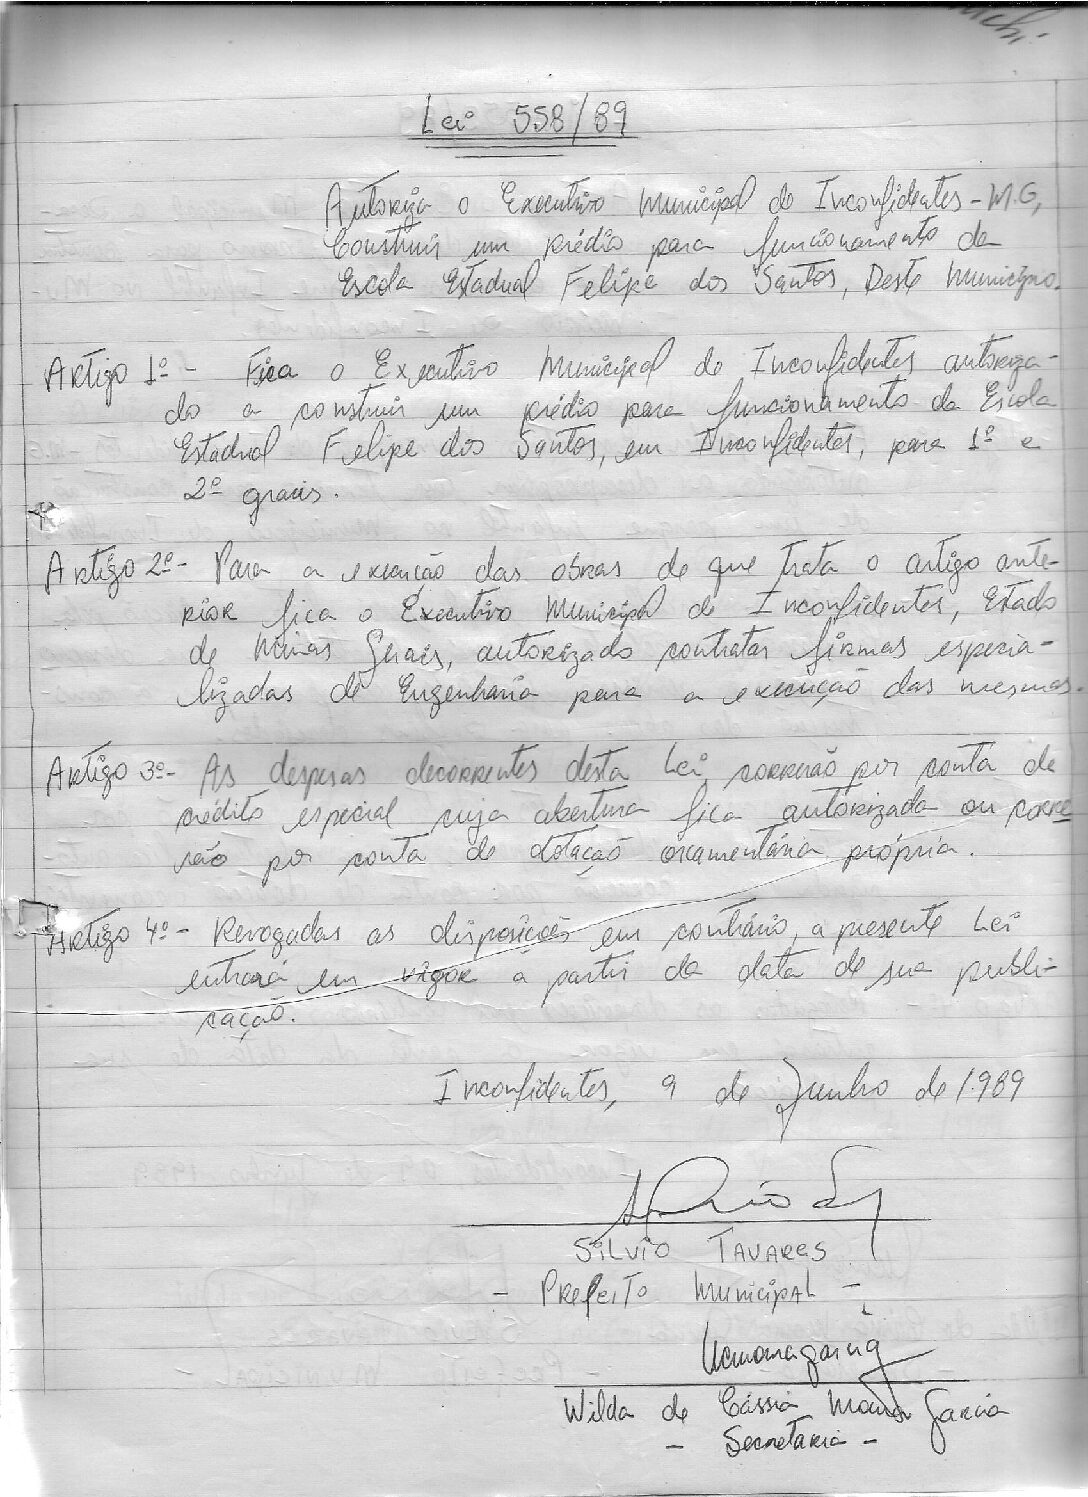 Lei 558/89
Autoriza o Executivo Municipal de Inconfidentes - M.G,
Construir um prédio para funcionamento da
Escola Estadual Felipe dos Santos, Deste Município.
Artigo 1º - Fica o Executivo Municipal de Inconfidentes autoriza-
do a construir um prédio para funcionamento da Escola
Estadual Felipe dos Santos, em Inconfidentes, para 1º e
2º graus.
Artigo 2º - Para a execução das obras de que trata o artigo ante-
rior fica o Executivo Municipal de Inconfidentes, Estado
de Minas Gerais, autorizado contratar firmas especia-
lizadas de Engenharia para a execução das mesmas.
Artigo 3º - As despesas decorrentes desta Lei, correrão por conta de
crédito especial cuja abertura fica autorizada ou corre
rão por conta de dotação orçamentária própria.
Artigo 4º - Revogadas as disposições em contrário, a presente Lei
entrará em vigor a partir da data de sua publi-
cação.
Inconfidentes, 9 de Junho de 1.989
SILVIO TAVARES
- Prefeito Municipal -
Wilda de Cássia Moura Garcia
- Secretaria -